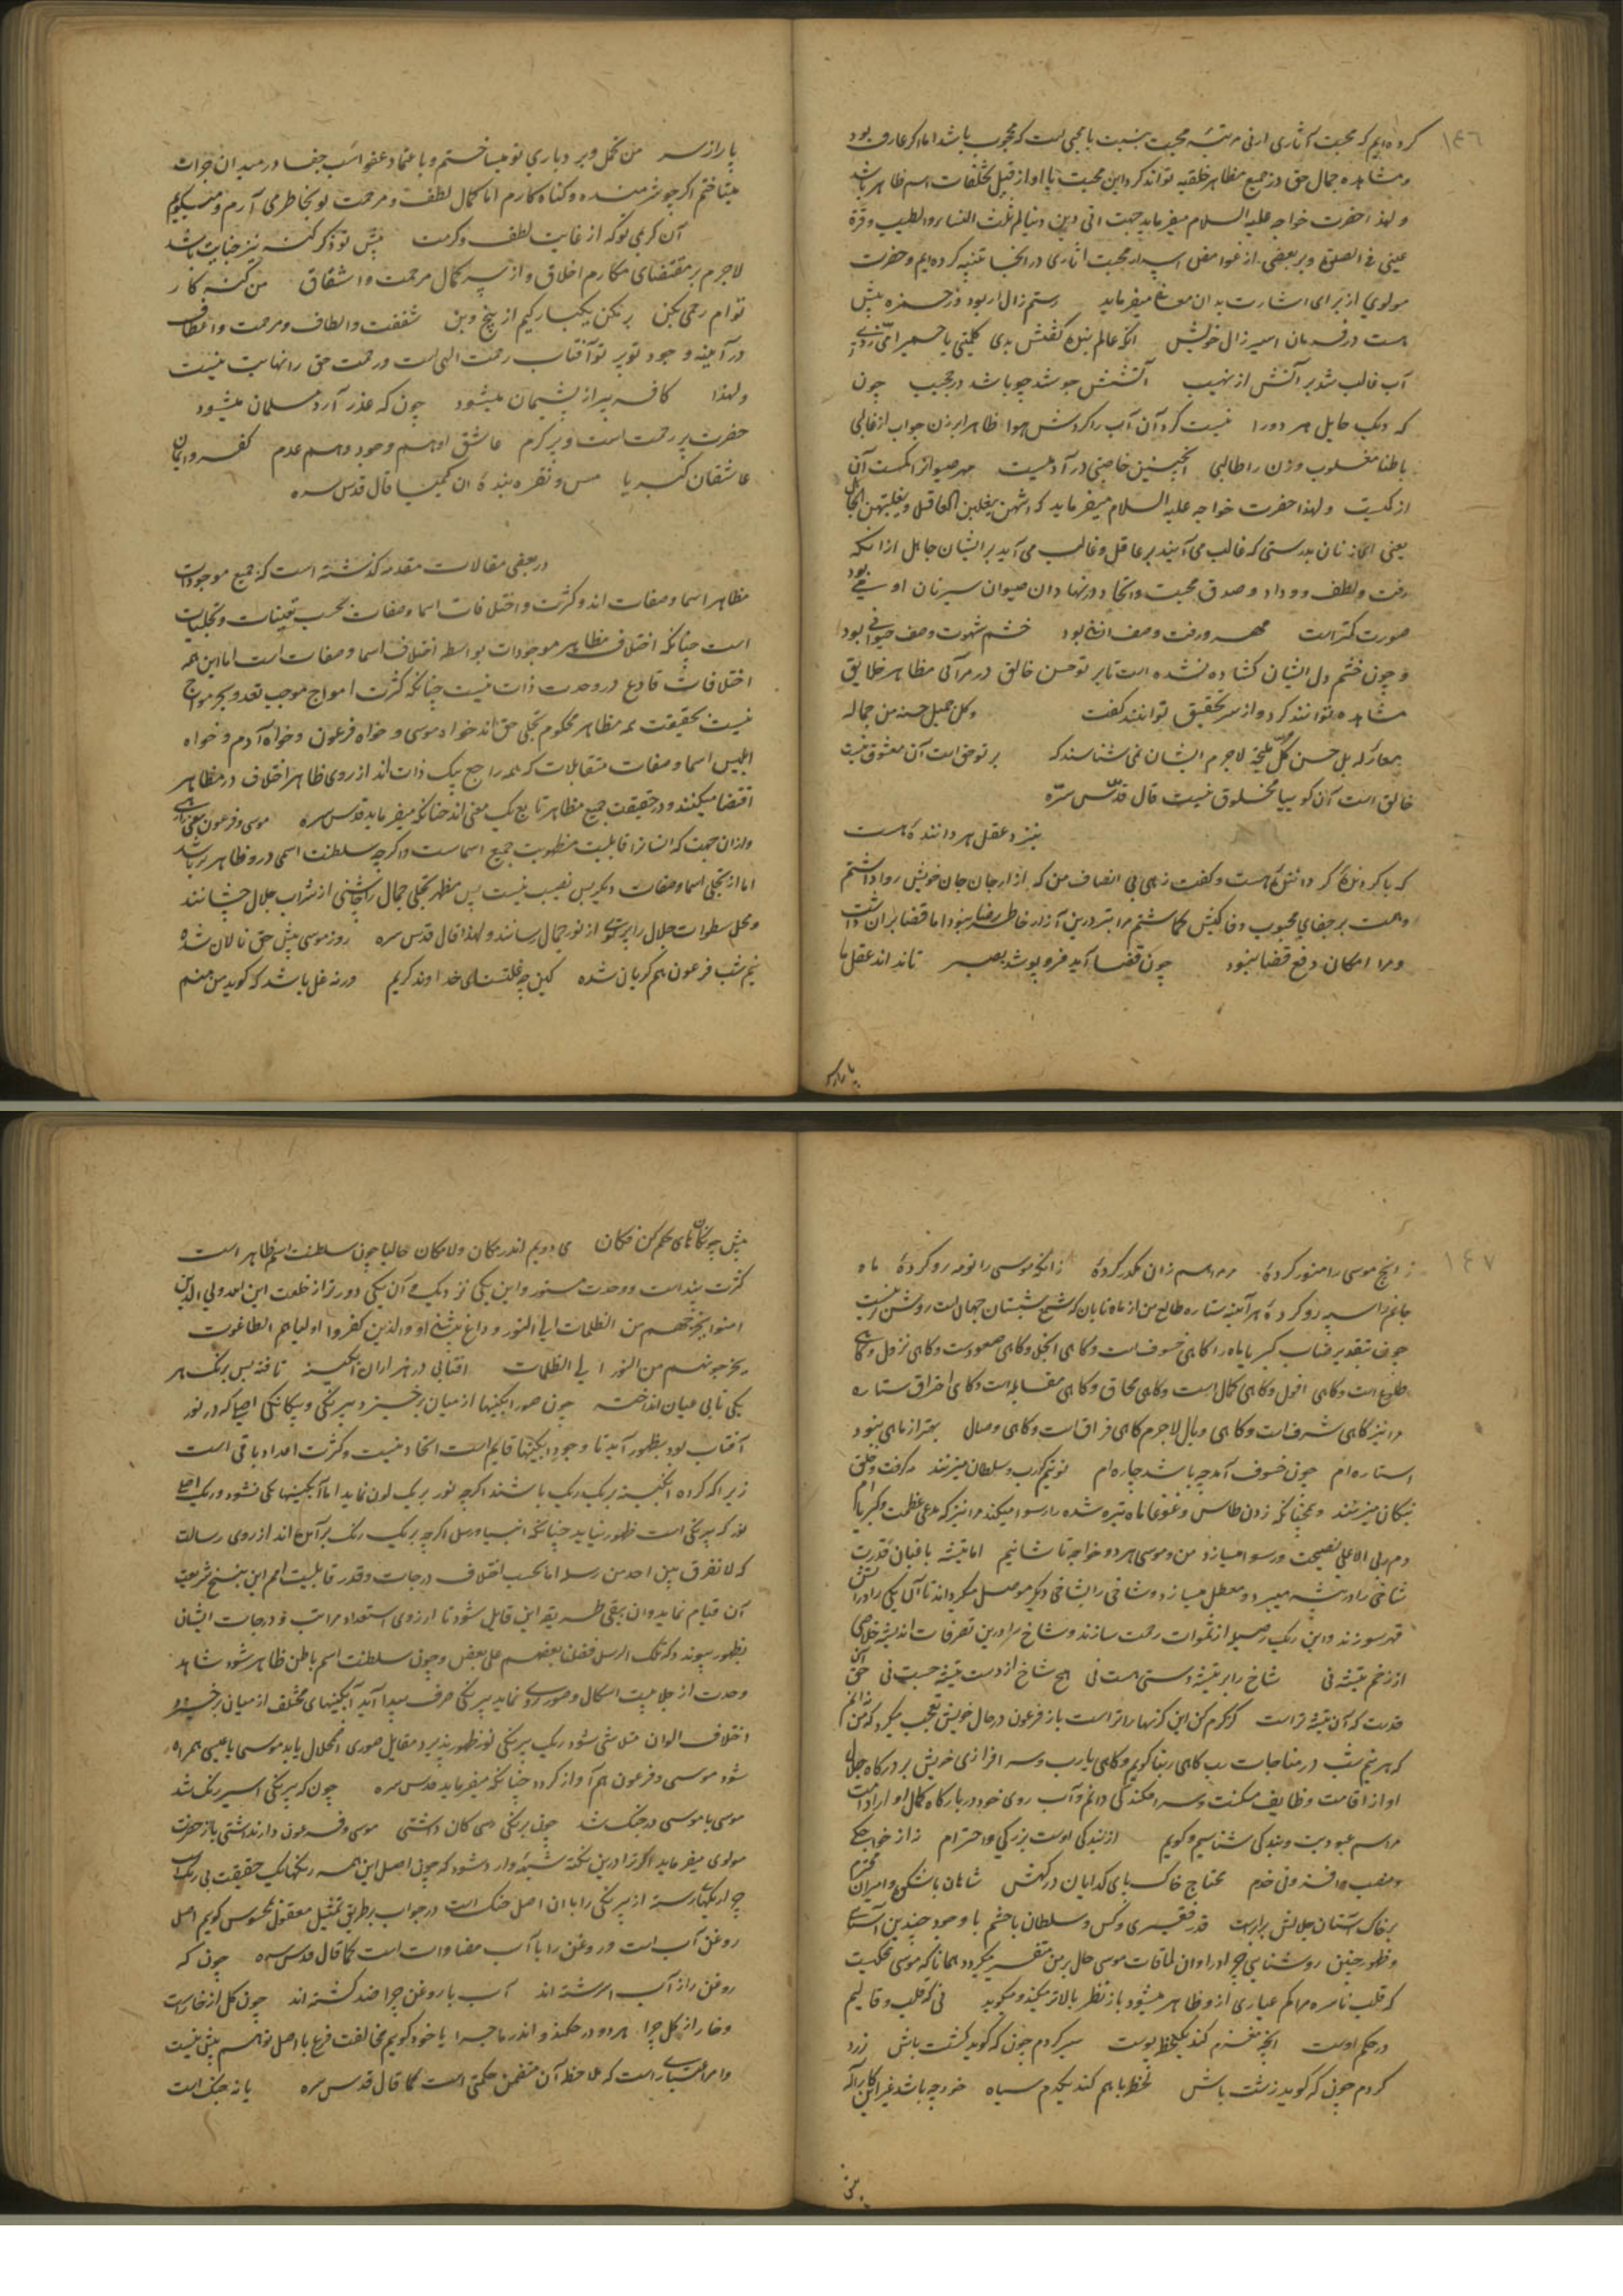 ١٤٦
کرده ایم که محبت آثاری ادنی مرتبهٔ محبت نسبت با محبی است که محجوب باشد اما اگر عارف بود
ومشاهده جمال حق در جمیع مظاهر خلقیه تواند کرد این محبت با او از قبیل تعلقات اسم ظاهر باشد
و لهذا حضرت خواجه علیه السلام میفرماید حببت الی من دنیاکم ثلث النساء والطیب وقرة
عینی فی الصلوة و بر بعضی از غوامض اسرار محبت آثاری در انجا تنبیه کرده ایم و حضرت
مولوی از برای اشارت بدان معنی میفرماید رستم زال ار بود وز حمزه بیش
هست در فرمان اسیر زال خویش آنکه عالم بنده کفتش بدی کلمینی یا حمیرا می زدی
آب غالب شد بر آتش از نهیب آتشش جوشد چو باشد در حجیب چون
که دیک حایل هر دو را نیست کرد آن آب را کردش هوا ظاهرا بر زن چو آب ار غالبی
باطنا مغلوب و زن را طالبی اینچنین خاصیتی در آدمیست مهر حیوانرا کمست آن
از کمیست و لهذا حضرت خواجه علیه السلام میفرماید که انهن یغلبن العاقل ویغلبهن الجاهل
یعنی زنان بدرستی که غالب می آیند بر عاقل و غالب می آید بر ایشان جاهل از انکه
رقت و لطف و وداد و صدق محبت و اتحاد در نهاد ان حیوان سیرتان
صورت کمتر است مهر و رقت وصف انسانی بود خشم شهوت وصف حیوانی بود
و چون چشم دل ایشان کشاده نشده است تا پرتو حسن خالق در مرآئی مظاهر خلایق
مشاهده توانند کرد و از سر تحقیق توانند کفت وکل جمیل حسنه من جماله
معار له بل حسن کل ملیحة لاجرم ایشان نمی شناسند که پرتو حق است آن معشوق نیست
خالق است آن کوییا مخلوق نیست قال قدس سره
نیز و عقل هر داننده هست
که با کردنده کرداننده هست و کفت زهی بی انصاف من که ازار جان جان خویش روا داشتم
وهمت بر جفای محبوب وفا کیش کماشتم مرا بتر درین آزار خاطر رضا نبود اما قضا بران داشت
ومرا امکان دفع قضا نبود چون قضا آید فرو پوشد بصر تا نداند عقل ما
پا را ز سر

پا را ز سر من تحمل و بردباری تو میساختم و با عتماد عفو اسب جفا در میدان جرات
میتاختم اگر چه شرمنده و کناه کارم اما کمال لطف و مرحمت تو بخاطر می آرم و میکویم
آن کرمی تو که از غایت لطف و کرمت پیش تو ذکر کنه نیز جنایت باشد
لاجرم بر مقتضای مکارم اخلاق و از سر کمال مرحمت و اشفاق من کنه کار
توام رحمی بکن بر مکن یکبارگیم از بیخ و بن شفقت و الطاف و مرحمت و اعطاف
در آیینه وجود تو پرتو آفتاب رحمت الهی است و رحمت حق را نهایت نیست
ولهذا کافر پیر از پشیمان میشود چون که عذر آرد مسلمان میشود
حضرت پر رحمت است و پر کرم عاشق او هم وجود و هم عدم کفر و ایمان
عاشقان کبریا مس و نقره بندهٔ ان کیمیا قال قدس سره
در بعضی مقالات مقدم کذشته است که جمیع موجودات
مظاهر اسما و صفات اند و کثرت و اختلافات اسما و صفات بحسب تعینات و تجلیات
است چنانکه اختلاف مظاهر موجودات بواسطه اختلاف اسما و صفات است اما این همه
اختلافات قادح در وحدت ذات نیست چنانکه کثرت امواج موجب تعدد بحر مواج
نیست بحقیقت همه مظاهر محکوم تجلی حق اند خواه موسی و خواه فرعون و خواه آدم و خواه
ابلیس اسما و صفات متقابلات که همه راجع بیک ذات اند از روی ظاهر اختلاف در مظاهر
اقتضا میکنند و در حقیقت جمیع مظاهر تابع یک معنی اند چنانکه میفرماید قدس سره موسی و فرعون معنی را رهی
و از ان جهت که انسانرا قابلیت مظهریت جمیع اسماست و اگر چه سلطنت اسمی درو ظاهر تر باشد
اما از تجلی اسما و صفات دیگر بی نصیب نیست پس مظهر تجلی جمال را چاشنی از شراب جلال چشانند
و محل سطوات جلال را پرتوی از نور جمال رسانند و لهذا قال قدس سره روز موسی پیش حق نالان شده
نیم شب فرعون هم گریان شده کین چه غلست ای خدا وند کریم ورنه غل باشد که کوید من منم

١٤٧
زانچ موسی را منور کردهٔ مر مرا هم زان مکدر کردهٔ زانکه موسی را تو مه رو کردهٔ ماه
جانم را سیه رو کردهٔ هر آینه ستاره طالع من از ماه تابان که شمع شبستان جهان است روشن تر نیست
چون بتقدیر جناب کبریا ماه را کاهی خسوف است وکاهی انجلا وکاهی صعودست وکاهی نزول وکاهی
طلوع است وکاهی افول وکاهی کمال است وکاهی محاق وکاهی مقابله است وکاهی احتراق ستاره
مرا نیز کاهی شرف است وکاهی وبال لاجرم کاهی فراق است وکاهی وصال بهتر از ماهی نبود
استاره ام چون خسوف آمد چه باشد چاره ام نوبتم گر رب و سلطان میزنند مه گرفت و خلق
پنکان میزنند و همچنانکه زدن طاس و غوغا ماه تیره شده را رسوا میکند مرا نیز که مدعی عظمت و کبریاام
دم ربی الاعلی فضیحت و رسوا میسازد من و موسی هر دو خواجه تاشانیم اما تیشه باغبان قدرت
شاخی را در بیشه میبرد و معطل میسازد و شاخی را بشاخی دیگر موصل میکرداند تا آن یکی را در آتش
قهر سوزند و این دیگر را وسیله از ثمرات رحمت سازند و شاخ را درین تصرفات اندیشه خلاصی
از زخم تیشه نی شاخ را بر تیشه دستی هست نی هیچ شاخ از دست تیشه جست نی حق آن
قدرت که آن تیشه تراست از کرم کن این کژیها را تو راست باز فرعون در حال خویش تعجب میکرد که من نه آنم
که هر نیم شب در مناجات رب کاهی ربنا کویم وکاهی یا رب وسر افرازی خویش بر درگاه جلال
او از اقامت وظایف مسکنت و سر افکندکی دانم و آب روی خود در بارگاه کمال او از ادامت
مراسم عبودیت و بندکی شناسم و کویم از بندکی اوست بزرکی و احترام نز از خواجکی
ومنصب وافزونی خدم محتاج خاک پای کدایان درکهش شاهان با شکوه و امیران محترم
بر خاک آستان جلالش برابرست قدر فقیر بی کس و سلطان با حشم با وجود چندین آشنایی
وظهور چنین روشنایی چرا در اوان ملاقات موسی حال بر من متغیر میکردد همانا که موسی محکیست
که قلب ناسره مرا محک عیاری ازو ظاهر میشود باز نظر بالاتر میکند و میگوید نی که قلب و قالبم
در حکم اوست لحظه مغزم کند یک لحظه پوست سبز کردم چون که کوید کشت باش زرد
کردم چون که کوید زشت باش لحظه ماهم کند یکدم سیاه خود چه باشد غیر این کار اله
پیش

پیش چوکانهای حکم کن فکان می دویم اندر مکان و لامکان حالیا چون سلطنت اسم ظاهر است
کثرت پیداست و وحدت مستور و این یکی نزدیک و آن یکی دور تر از خلعت این الله ولی الذین
امنوا یخرجهم من الظلمات الی النور و داغ پیشانی او والذین کفروا اولیاءهم الطاغوت
یخرجونهم من النور الی الظلمات آفتابی در هزاران آبگینه تافته پس برنگ هر
یکی تابی عیان انداخته چون صور آبگینها از میان برخیزد بیرنگی و یکانگی اصیله که در نور
آفتاب بود بظهور آید تا وجود آبگینها قایم است اتحاد نیست و کثرت اعداد باقی است
زیرا که گرد آبگینه یک رنگ باشند اگر چه نور بر یک لون نماید اما آبگینها یکی نشود و رنگ اصلی
نور که بیرنگی است ظهور نیابد چنانکه انبیا و رسل اگر چه بر یک رنگ برآمده اند از روی رسالت
که لا نفرق بین احد من رسله اما بحسب اختلاف درجات و قدر قابلیت امم این بنسخ شریعت
آن قیام نماید و ان ببقی طریقه این قایل شود تا از روی استعداد مراتب و درجات ایشان
بظهور پیوندد که تلک الرسل فضلنا بعضهم علی بعض و چون سلطنت اسم باطن ظاهر شود شاهد
وحدت از جلابیب اشکال و صور روی نماید بیرنگی صرف پیدا آید آبگینهای مختلف از میان برخیزد و
اختلاف الوان متلاشی شود رنگ بیرنگی نور ظهور پذیرد مقابل صوری انحلال یابد موسی با عیسی همراه
شود موسی و فرعون هم آواز کردد چنانکه میفرماید قدس سره چون که بیرنگی اسیر رنگ شد
موسی با موسی در جنک شد چون به بیرنگی رسی کان داشتی موسی و فرعون دارند آشتی باز حضرت
مولوی میفرماید اگر ترا درین نکته شبهه وارد شود که چون اصل این همه رنگها یک حقیقت بی رنگ است
چرا رنگها رسته از بیرنگی را با ان اصل جنک است در جواب بر طریق تمثیل معقول بمحسوس کویم اصل
روغن آب است و روغن را با آب مضادات است کما قال قدس سره چون که
روغن را ز آب اسرشته اند آب با روغن چرا ضد کشته اند چون کل از خارست
وخار از کل چرا هر دو در جنکند و اندر ماجرا یا خود کویم مخالفت فرع با اصل توهم بیش نیست
و امر اعتباری است که ملاحظه آن متضمن حکمتی است کما قال قدس سره یا نه جنک است